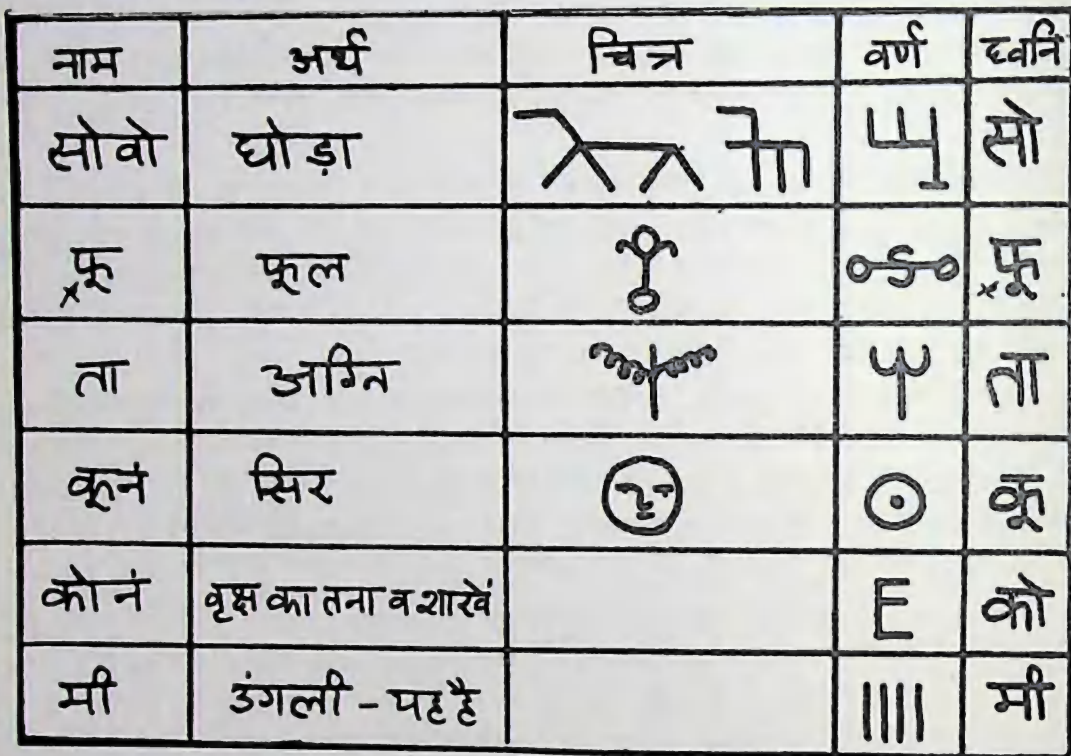 नाम अर्थ चित्र वर्ण ध्वनि
सोवो घोड़ा सो
फ़ू फूल फ़ू
ता अग्नि ता
कूनं सिर कू
कोनं वृक्ष का तना व शाखें E को
मी उंगली - यह है मी